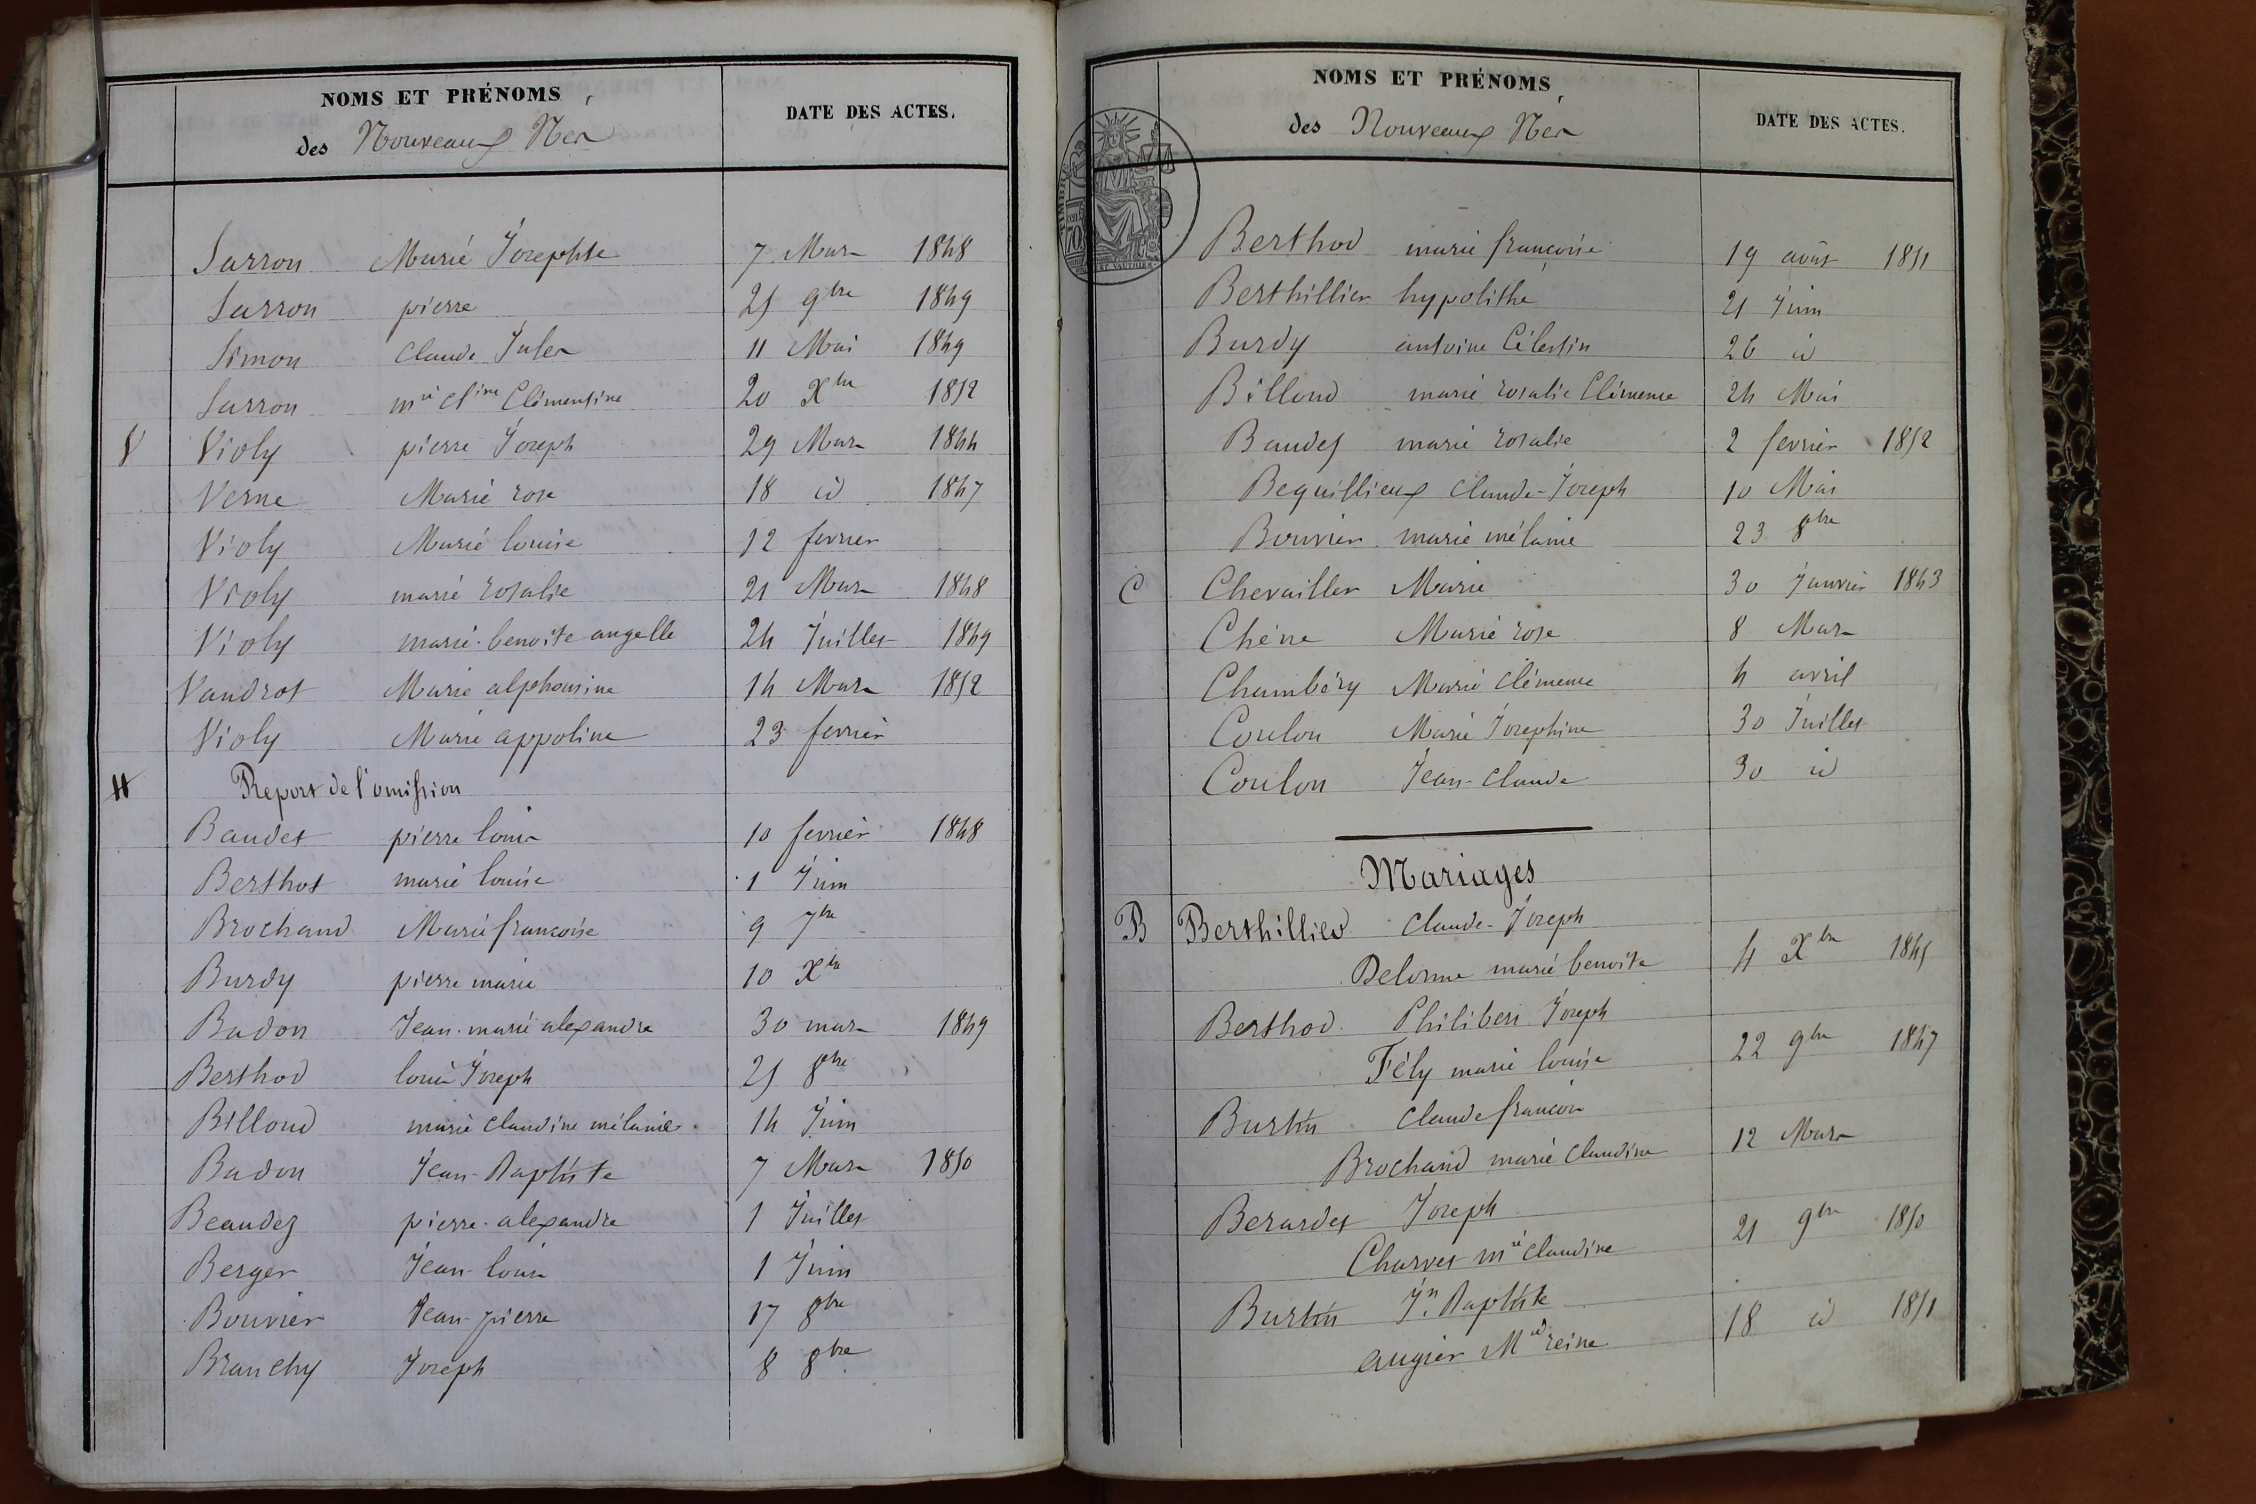 NOMS ET PRÉNOMS
des Nouveaux Nés
DATE DES ACTES.
Sarron Marie Josephte 7 Mars 1848
Sarron pierre 25 9bre 1849
Simon Claude Jules 11 Mai 1849
Sarron mie Cline Clémentine 20 Xbre 1852
V Violy pierre Joseph 29 Mars 1844
Verne Marie rose 18 id 1847
Violy Marie louise 12 fevrier
Violy marie rosalie 21 Mars 1848
Violy marie-benoite angelle 24 Juillet 1849
Vandrot Marie alphonsine 14 Mars 1852
Violy Marie appoline 23 fevrier
# Report de l'omission
Baudet pierre louis 10 fevrier 1848
Berthot marie louise 1 Juin
Brochand Marie francoise 9 7bre
Burdy pierre marie 10 Xbre
Badon Jean-marie alexandre 30 mars 1849
Berthod louis Joseph 25 8bre
Billoud marie claudine mélanie 14 Juin
Badon Jean-Baptiste 7 Mars 1850
Beaudez pierre-alexandre 1 Juillet
Berger Jean-louis 1 Juin
Bouvier Jean-pierre 17 8bre
Branchy Joseph 8 8bre
NOMS ET PRÉNOMS
des Nouveaux Nés
DATE DES ACTES.
Berthod marie francoise 19 août 1851
Berthillier hypolithe 21 Juin
Burdy antoine Célestin 26 id
Billoud marie rosalie Clémence 24 Mai
Baudet marie rosalie 2 fevrier 1852
Bequillieux Claude-Joseph 10 Mai
Bouvier marie mélanie 23 8bre
C Chevailler Marie 30 Janvier 1843
Chêne Marie rose 8 Mars
Chambéry Marie Clémence 4 avril
Coulon Marie Josephine 30 Juillet
Coulon Jean-Claude 30 id
Mariages
B Berthillier Claude-Joseph
Delorme marie benoite 4 Xbre 1845
Berthod Philibert Joseph
Fély marie louise 22 9bre 1847
Burtin Claude francois
Brochand marie Claudine 12 Mars
Berardet Joseph
Charvet mie Claudine 21 9bre 1850
Burtin Jn Baptiste
augier Mie reine 18 id 1851